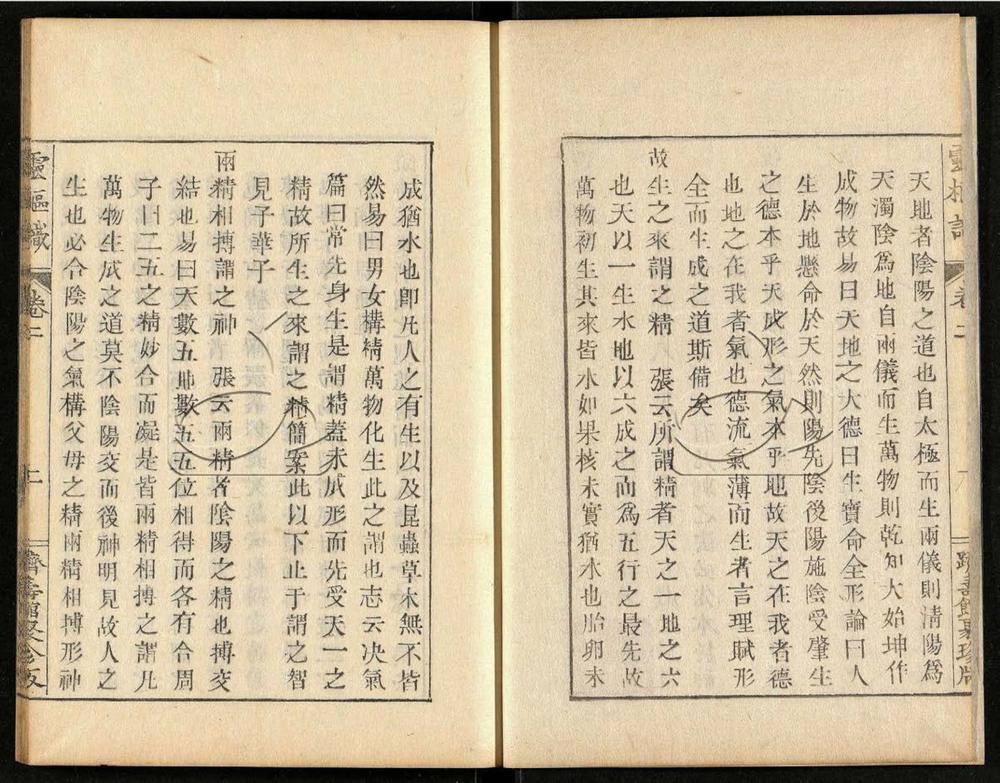 靈樞識
卷二
六
躋壽館聚珍版
天地者陰陽之道也自太極而生兩儀則淸陽爲
天濁陰爲地自兩儀而生萬物則乾知大始坤作
成物故易曰天地之大德曰生寶命全形論曰人
生於地懸命於天然則陽先陰後陽施陰受肇生
之德本乎天成形之氣本乎地故天之在我者德
也地之在我者氣也德流氣薄而生者言理賦形
全而生成之道斯備矣
故生之來謂之精 張云所謂精者天之一地之六
也天以一生水地以六成之而爲五行之最先故
萬物初生其來皆水如果核未實猶水也胎卵未
成猶水也卽凡人之有生以及昆蟲草木無不皆
然易曰男女構精萬物化生此之謂也志云决氣
篇曰常先身生是謂精蓋未成形而先受天一之
精故所生之來謂之精簡案此以下止于謂之智
見子華子
兩精相搏謂之神 張云兩精者陰陽之精也搏交
結也易曰天數五地數五五位相得而各有合周
子曰二五之精妙合而凝是皆兩精相搏之謂凡
萬物生成之道莫不陰陽交而後神明見故人之
生也必合陰陽之氣構父母之精兩精相搏形神
靈樞識
卷二
七
躋壽館聚珍版